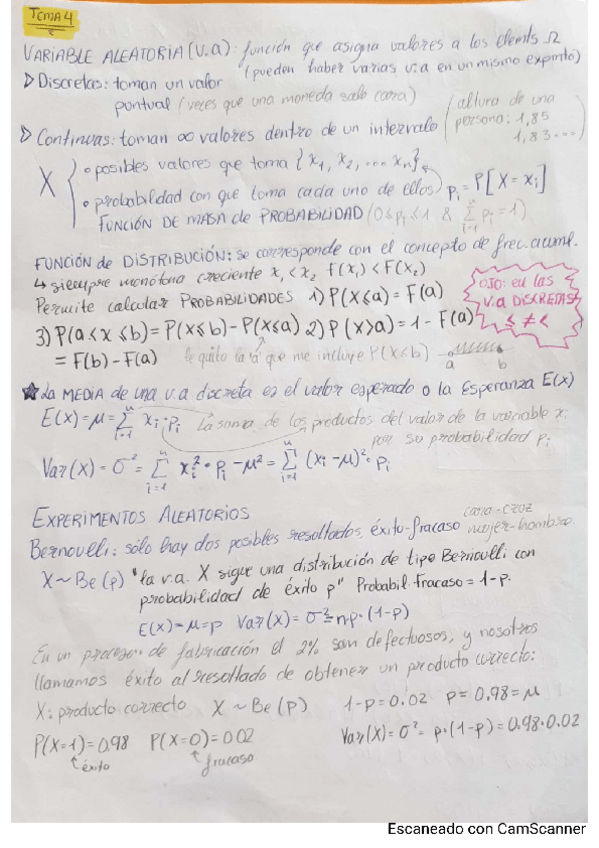 TEMA 4
VARIABLE ALEATORIA (v.a): función que asigna valores a los elemts Ω
(pueden haber varias v.a en un mismo expmto)
▷ Discretas: toman un valor
puntual (veces que una moneda sale cara)
▷ Continuas: toman ∞ valores dentro de un intervalo (altura de una persona: 1,85 1,83...)
X { • posibles valores que toma {x₁, x₂, ... xₙ}
• probabilidad con que toma cada uno de ellos pᵢ = P[X = xᵢ]
FUNCIÓN DE MASA de PROBABILIDAD (0 ≤ pᵢ ≤ 1 & Σⁿᵢ₌₁ pᵢ = 1)
FUNCIÓN de DISTRIBUCIÓN: se corresponde con el concepto de frec. acuml.
↳ siempre monótona creciente x₁ < x₂ f(x₁) < F(x₂)
Permite calcular PROBABILIDADES 1) P(X ≤ a) = F(a)
OJO: en las
v.a DISCRETAS
≤ ≠ <
3) P(a < x ≤ b) = P(x ≤ b) - P(x ≤ a) 2) P(x > a) = 1 - F(a)
= F(b) - F(a) le quito la a que me incluye P(x ≤ b) a b
★ La MEDIA de una v.a discreta es el valor esperado o la Esperanza E(x)
E(x) = μ = Σⁿᵢ₌₁ xᵢ · pᵢ La suma de los productos del valor de la variable xᵢ
por su probabilidad pᵢ
Var(x) = σ² = Σⁿᵢ₌₁ xᵢ² · pᵢ - μ² = Σⁿᵢ₌₁ (xᵢ - μ)² · pᵢ
EXPERIMENTOS ALEATORIOS
Bernoulli: sólo hay dos posibles resultados, éxito-fracaso cara-cruz mujer-hombre
X ~ Be(p) "la v.a. X sigue una distribución de tipo Bernoulli con
probabilidad de éxito p" Probabil. Fracaso = 1-p.
E(x) = μ = p Var(x) = σ² = n·p·(1-p)
En un proceso de fabricación el 2% son defectuosos, y nosotros
llamamos éxito al resultado de obtener un producto correcto:
X: producto correcto X ~ Be(p) 1-p = 0.02 p = 0.98 = μ
P(X=1) = 0.98 P(X=0) = 0.02 Var(x) = σ² = p·(1-p) = 0.98·0.02
↑ éxito ↑ fracaso
Escaneado con CamScanner